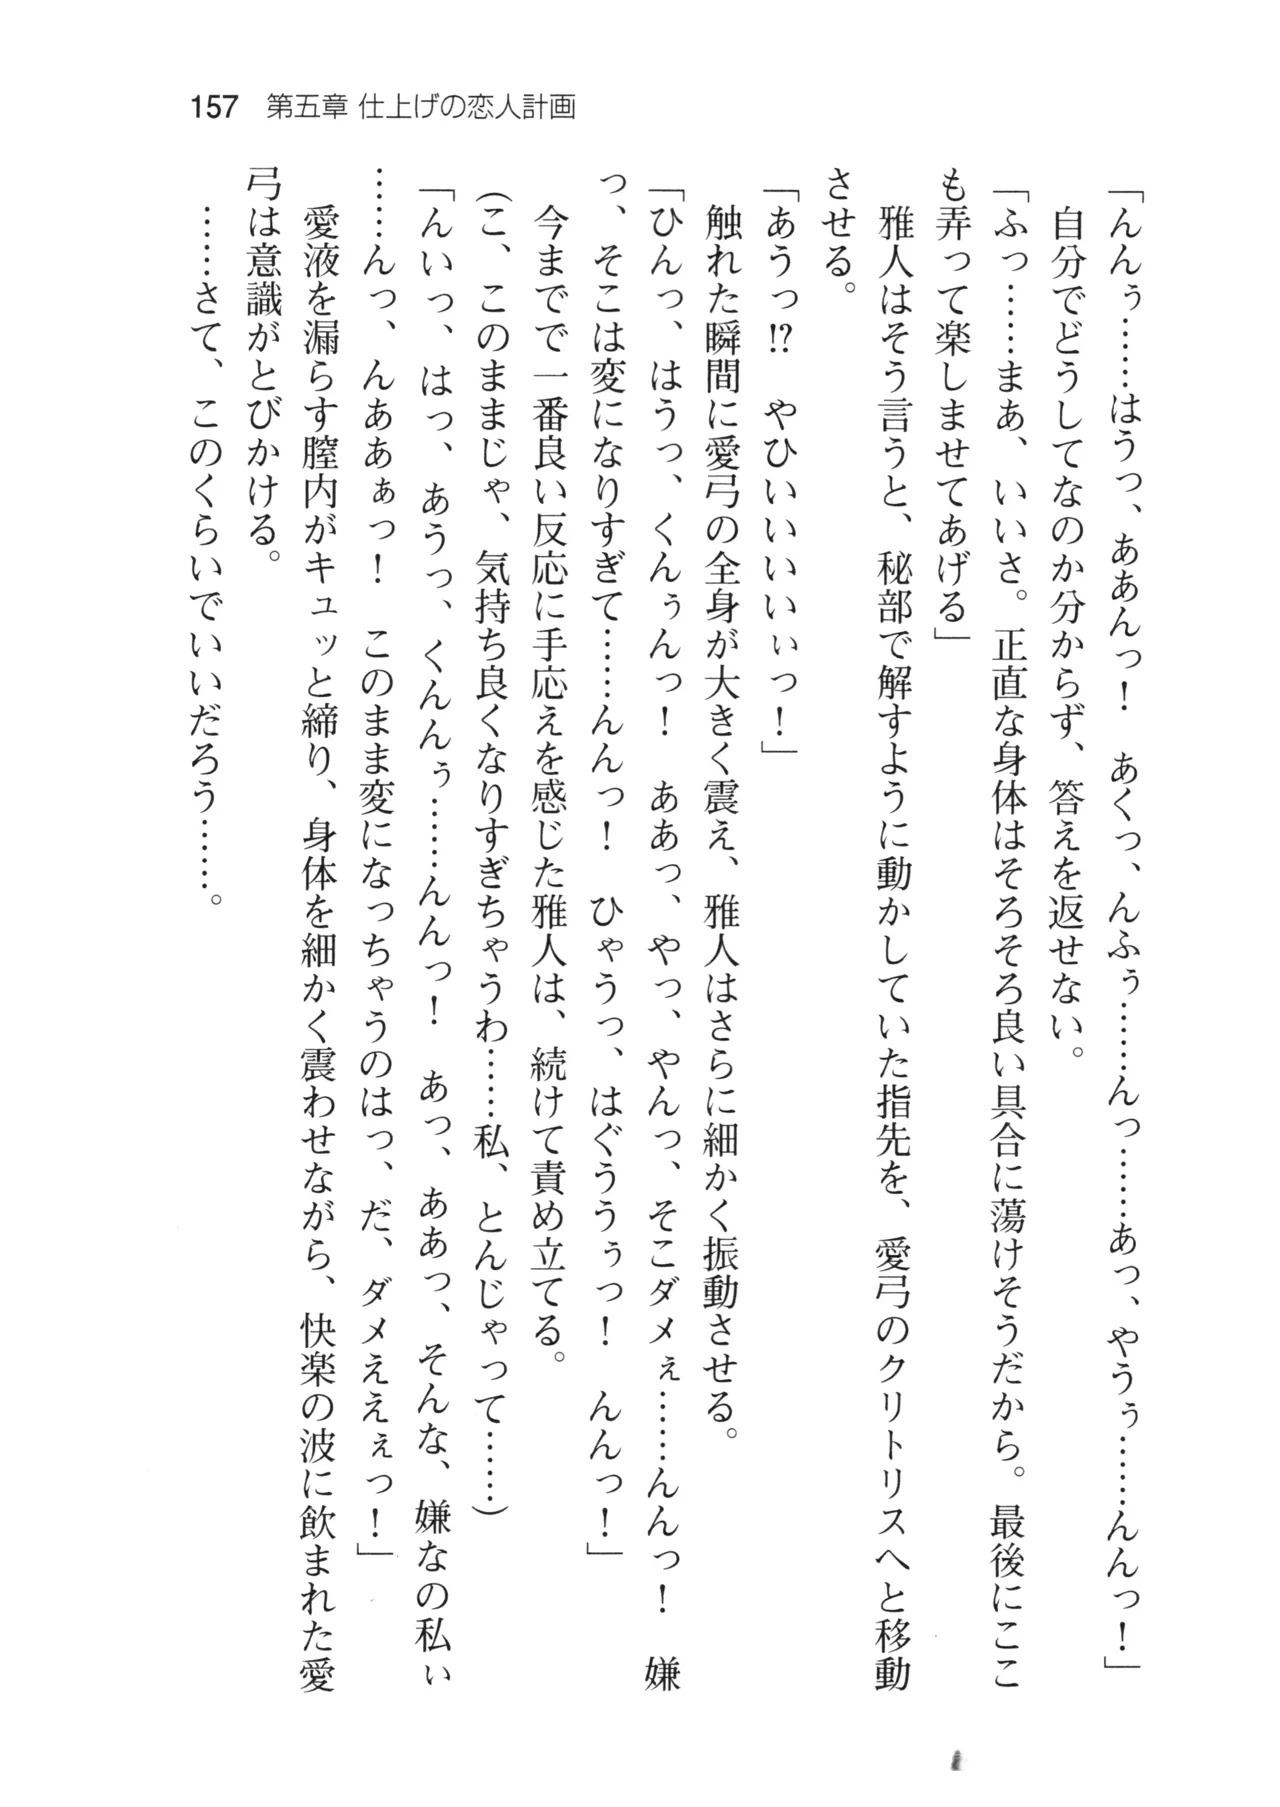 157 第五章 仕上げの恋人計画
「んんぅ……はうっ、ああんっ！　あくっ、んふぅ……んっ……あっ、やうぅ……んんっ！」
　自分でどうしてなのか分からず、答えを返せない。
「ふっ……まあ、いいさ。正直な身体はそろそろ良い具合に蕩けそうだから。最後にここ
も弄って楽しませてあげる」
　雅人はそう言うと、秘部で解すように動かしていた指先を、愛弓のクリトリスへと移動
させる。
「あうっ!?　やひいいいいぃっ！」
　触れた瞬間に愛弓の全身が大きく震え、雅人はさらに細かく振動させる。
「ひんっ、はうっ、くんぅんっ！　ああっ、やっ、やんっ、そこダメぇ……んんっ！　嫌
っ、そこは変になりすぎて……んんっ！　ひゃうっ、はぐううぅっ！　んんっ！」
　今までで一番良い反応に手応えを感じた雅人は、続けて責め立てる。
(こ、このままじゃ、気持ち良くなりすぎちゃうわ……私、とんじゃって……)
「んいっ、はっ、あうっ、くんんぅ……んんっ！　あっ、ああっ、そんな、嫌なの私ぃ
……んっ、んああぁっ！　このまま変になっちゃうのはっ、だ、ダメええぇっ！」
　愛液を漏らす膣内がキュッと締り、身体を細かく震わせながら、快楽の波に飲まれた愛
弓は意識がとびかける。
　……さて、このくらいでいいだろう……。